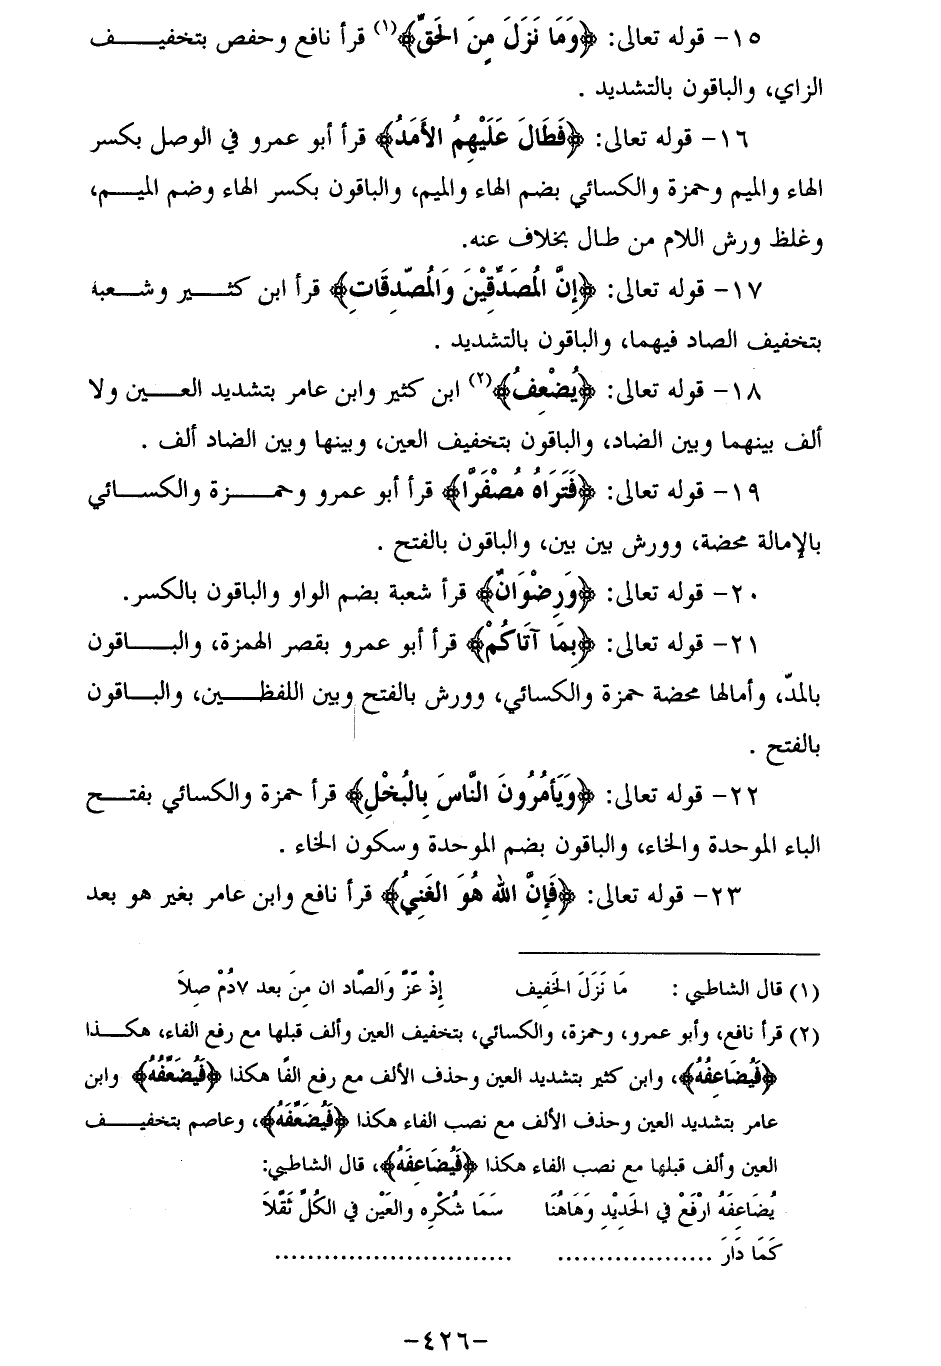 ١٥- قوله تعالى: ﴿وَمَا نَزَلَ مِنَ الْحَقِّ﴾(١) قرأ نافع وحفص بتخفيف
الزاي، والباقون بالتشديد .
١٦- قوله تعالى: ﴿فَطَالَ عَلَيْهِمُ الأَمَدُ﴾ قرأ أبو عمرو في الوصل بكسر
الهاء والميم وحمزة والكسائي بضم الهاء والميم، والباقون بكسر الهاء وضم الميم،
وغلظ ورش اللام من طال بخلاف عنه.
١٧- قوله تعالى: ﴿إِنَّ الْمُصَدِّقِيْنَ وَالْمُصّدِقَاتِ﴾ قرأ ابن كثير وشعبة
بتخفيف الصاد فيهما، والباقون بالتشديد .
١٨- قوله تعالى: ﴿يُضْعِفُ﴾(٢) ابن كثير وابن عامر بتشديد العين ولا
ألف بينهما وبين الضاد، والباقون بتخفيف العين، وبينها وبين الضاد ألف .
١٩- قوله تعالى: ﴿فَتَرَاهُ مُصْفَرًّا﴾ قرأ أبو عمرو وحمزة والكسائي
بالإمالة محضة، وورش بين بين، والباقون بالفتح .
٢٠- قوله تعالى: ﴿وَرِضْوَانٌ﴾ قرأ شعبة بضم الواو والباقون بالكسر.
٢١- قوله تعالى: ﴿بِمَا آتَاكُمْ﴾ قرأ أبو عمرو بقصر الهمزة، والباقون
بالمدّ، وأمالها محضة حمزة والكسائي، وورش بالفتح وبين اللفظين، والباقون
بالفتح .
٢٢- قوله تعالى: ﴿وَيَأمُرُونَ النَّاسَ بِالْبُخْلِ﴾ قرأ حمزة والكسائي بفتح
الباء الموحدة والخاء، والباقون بضم الموحدة وسكون الخاء .
٢٣- قوله تعالى: ﴿فَإِنَّ الله هُوَ الغَنِيُ﴾ قرأ نافع وابن عامر بغير هو بعد
(١) قال الشاطبي : مَا نَزَلَ الْخَفِيف إِذْ عَزَّ وَالصَّاد ان مِنَ بعد ٧دُمْ صِلاَ
(٢) قرأ نافع، وأبو عمرو، وحمزة، والكسائي، بتخفيف العين وألف قبلها مع رفع الفاء، هكذا
﴿فَيُضَاعِفُهُ﴾، وابن كثير بتشديد العين وحذف الألف مع رفع الفًا هكذا ﴿فَيُضَعِّفُهُ﴾ وابن
عامر بتشديد العين وحذف الألف مع نصب الفاء هكذا ﴿فَيُضَعِّفَهُ﴾، وعاصم بتخفيف
العين وألف قبلها مع نصب الفاء هكذا ﴿فَيُضَاعِفَهُ﴾، قال الشاطبي:
يُضَاعِفَهُ ارْفَعْ فِي الْحَدِيْدِ وَهَاهُنَا سَمَا شُكْرِه والعَيْن فِي الكُلِّ ثَقَّلاَ
كَمَا دَارَ .................... .............................
-٤٢٦-